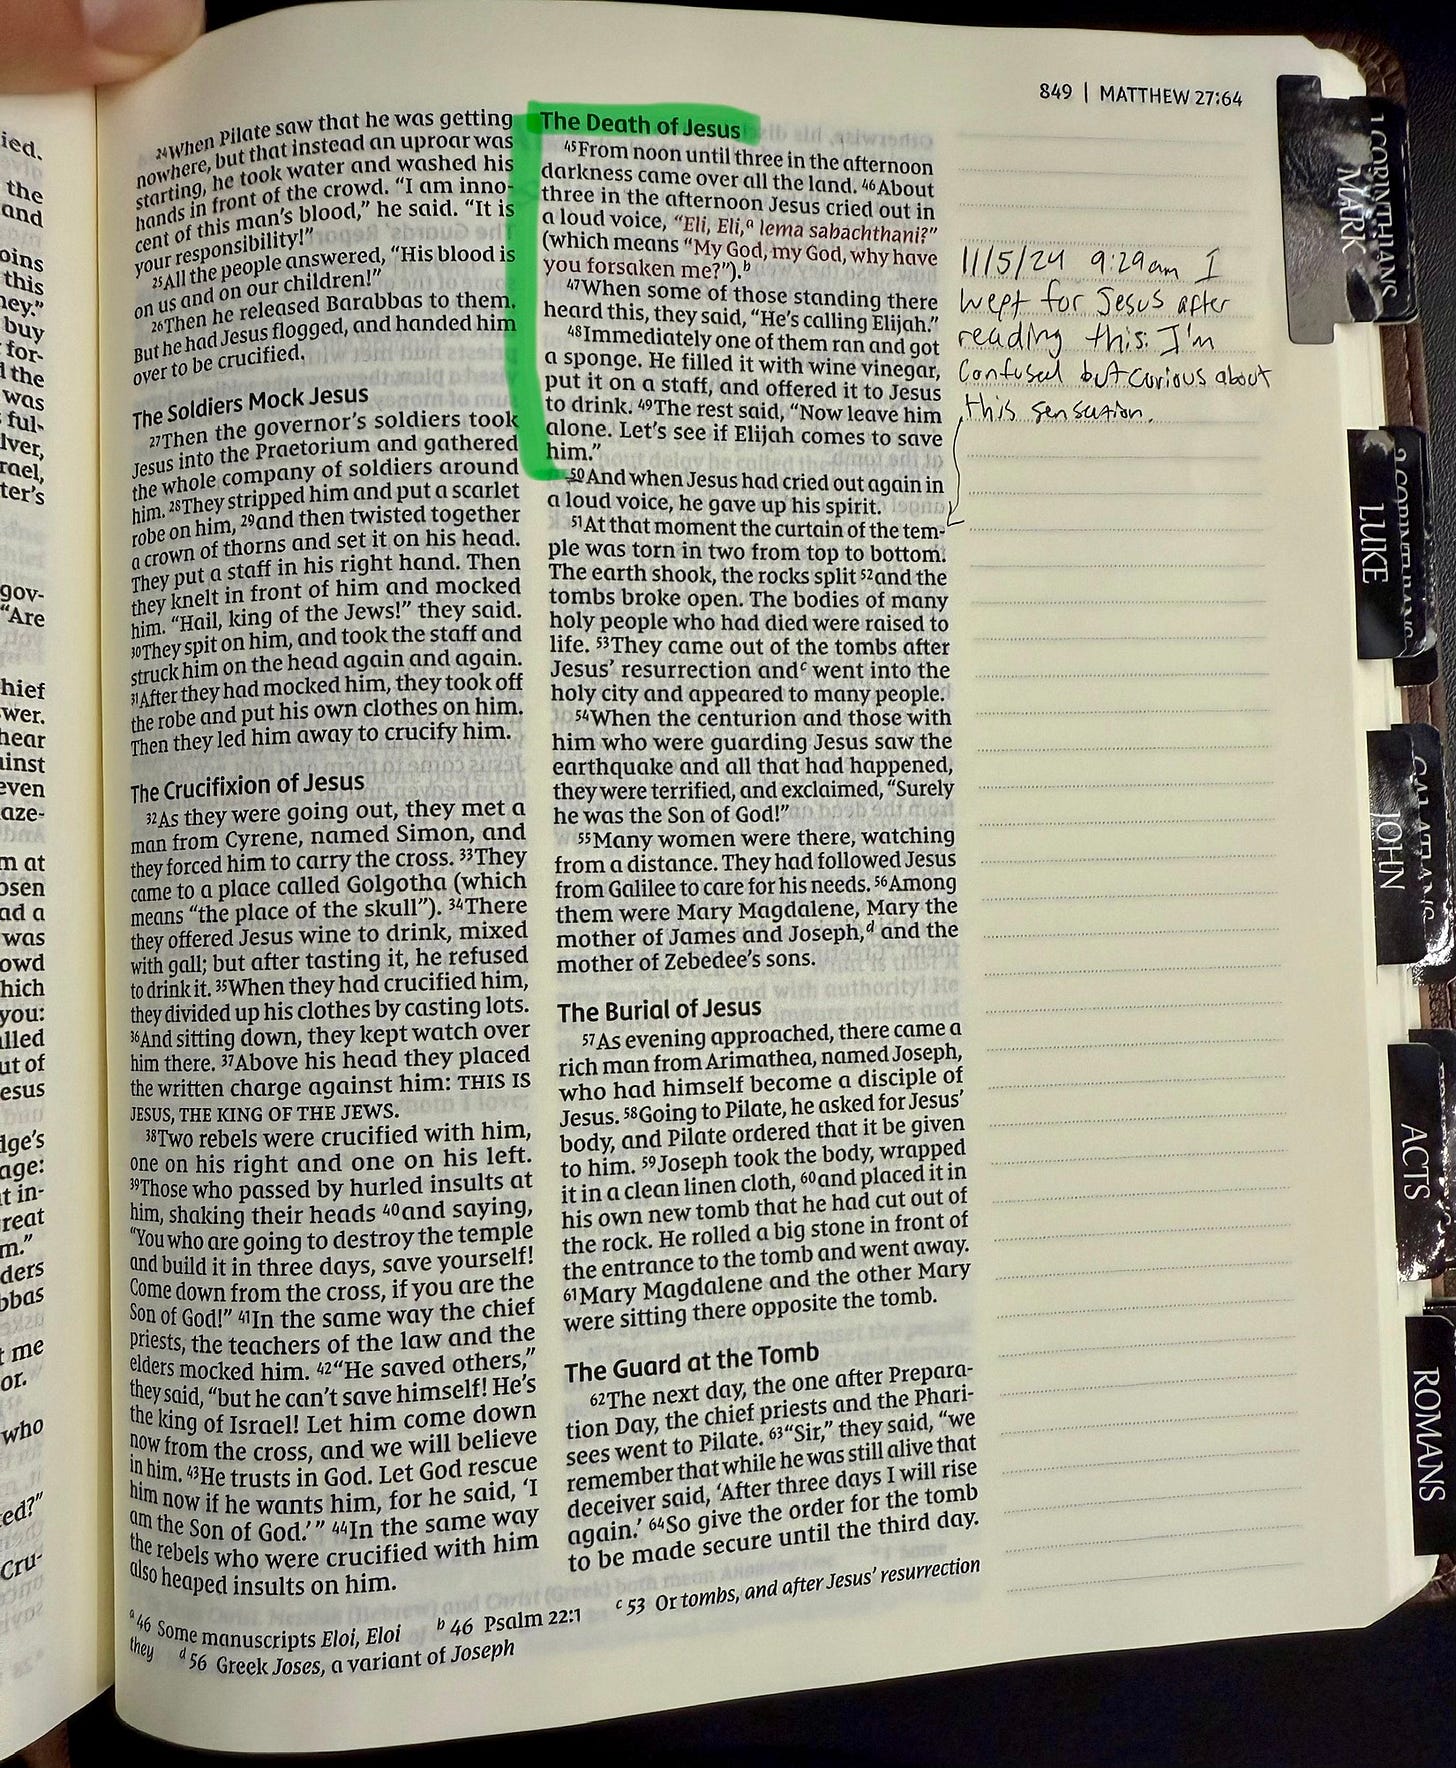 849 | MATTHEW 27:64
24When Pilate saw that he was getting
nowhere, but that instead an uproar was
starting, he took water and washed his
hands in front of the crowd. “I am inno-
cent of this man’s blood,” he said. “It is
your responsibility!”
25All the people answered, “His blood is
on us and on our children!”
26Then he released Barabbas to them.
But he had Jesus flogged, and handed him
over to be crucified.
The Soldiers Mock Jesus
27Then the governor’s soldiers took
Jesus into the Praetorium and gathered
the whole company of soldiers around
him. 28They stripped him and put a scarlet
robe on him, 29and then twisted together
a crown of thorns and set it on his head.
They put a staff in his right hand. Then
they knelt in front of him and mocked
him. “Hail, king of the Jews!” they said.
30They spit on him, and took the staff and
struck him on the head again and again.
31After they had mocked him, they took off
the robe and put his own clothes on him.
Then they led him away to crucify him.
The Crucifixion of Jesus
32As they were going out, they met a
man from Cyrene, named Simon, and
they forced him to carry the cross. 33They
came to a place called Golgotha (which
means “the place of the skull”). 34There
they offered Jesus wine to drink, mixed
with gall; but after tasting it, he refused
to drink it. 35When they had crucified him,
they divided up his clothes by casting lots.
36And sitting down, they kept watch over
him there. 37Above his head they placed
the written charge against him: THIS IS
JESUS, THE KING OF THE JEWS.
38Two rebels were crucified with him,
one on his right and one on his left.
39Those who passed by hurled insults at
him, shaking their heads 40and saying,
“You who are going to destroy the temple
and build it in three days, save yourself!
Come down from the cross, if you are the
Son of God!” 41In the same way the chief
priests, the teachers of the law and the
elders mocked him. 42“He saved others,”
they said, “but he can’t save himself! He’s
the king of Israel! Let him come down
now from the cross, and we will believe
in him. 43He trusts in God. Let God rescue
him now if he wants him, for he said, ‘I
am the Son of God.’ ” 44In the same way
the rebels who were crucified with him
also heaped insults on him.
The Death of Jesus
45From noon until three in the afternoon
darkness came over all the land. 46About
three in the afternoon Jesus cried out in
a loud voice, “Eli, Eli,a lema sabachthani?”
(which means “My God, my God, why have
you forsaken me?”).b
47When some of those standing there
heard this, they said, “He’s calling Elijah.”
48Immediately one of them ran and got
a sponge. He filled it with wine vinegar,
put it on a staff, and offered it to Jesus
to drink. 49The rest said, “Now leave him
alone. Let’s see if Elijah comes to save
him.”
50And when Jesus had cried out again in
a loud voice, he gave up his spirit.
51At that moment the curtain of the tem-
ple was torn in two from top to bottom.
The earth shook, the rocks split 52and the
tombs broke open. The bodies of many
holy people who had died were raised to
life. 53They came out of the tombs after
Jesus’ resurrection andc went into the
holy city and appeared to many people.
54When the centurion and those with
him who were guarding Jesus saw the
earthquake and all that had happened,
they were terrified, and exclaimed, “Surely
he was the Son of God!”
55Many women were there, watching
from a distance. They had followed Jesus
from Galilee to care for his needs. 56Among
them were Mary Magdalene, Mary the
mother of James and Joseph,d and the
mother of Zebedee’s sons.
The Burial of Jesus
57As evening approached, there came a
rich man from Arimathea, named Joseph,
who had himself become a disciple of
Jesus. 58Going to Pilate, he asked for Jesus’
body, and Pilate ordered that it be given
to him. 59Joseph took the body, wrapped
it in a clean linen cloth, 60and placed it in
his own new tomb that he had cut out of
the rock. He rolled a big stone in front of
the entrance to the tomb and went away.
61Mary Magdalene and the other Mary
were sitting there opposite the tomb.
The Guard at the Tomb
62The next day, the one after Prepara-
tion Day, the chief priests and the Phari-
sees went to Pilate. 63“Sir,” they said, “we
remember that while he was still alive that
deceiver said, ‘After three days I will rise
again.’ 64So give the order for the tomb
to be made secure until the third day.
a 46 Some manuscripts Eloi, Eloi b 46 Psalm 22:1 c 53 Or tombs, and after Jesus’ resurrection
they d 56 Greek Joses, a variant of Joseph
11/5/24 9:29am I
wept for Jesus after
reading this. I'm
confused but curious about
this sensation.
1 CORINTHIANS
MARK
2 CORINTHIANS
LUKE
GALATIANS
JOHN
ACTS
ROMANS